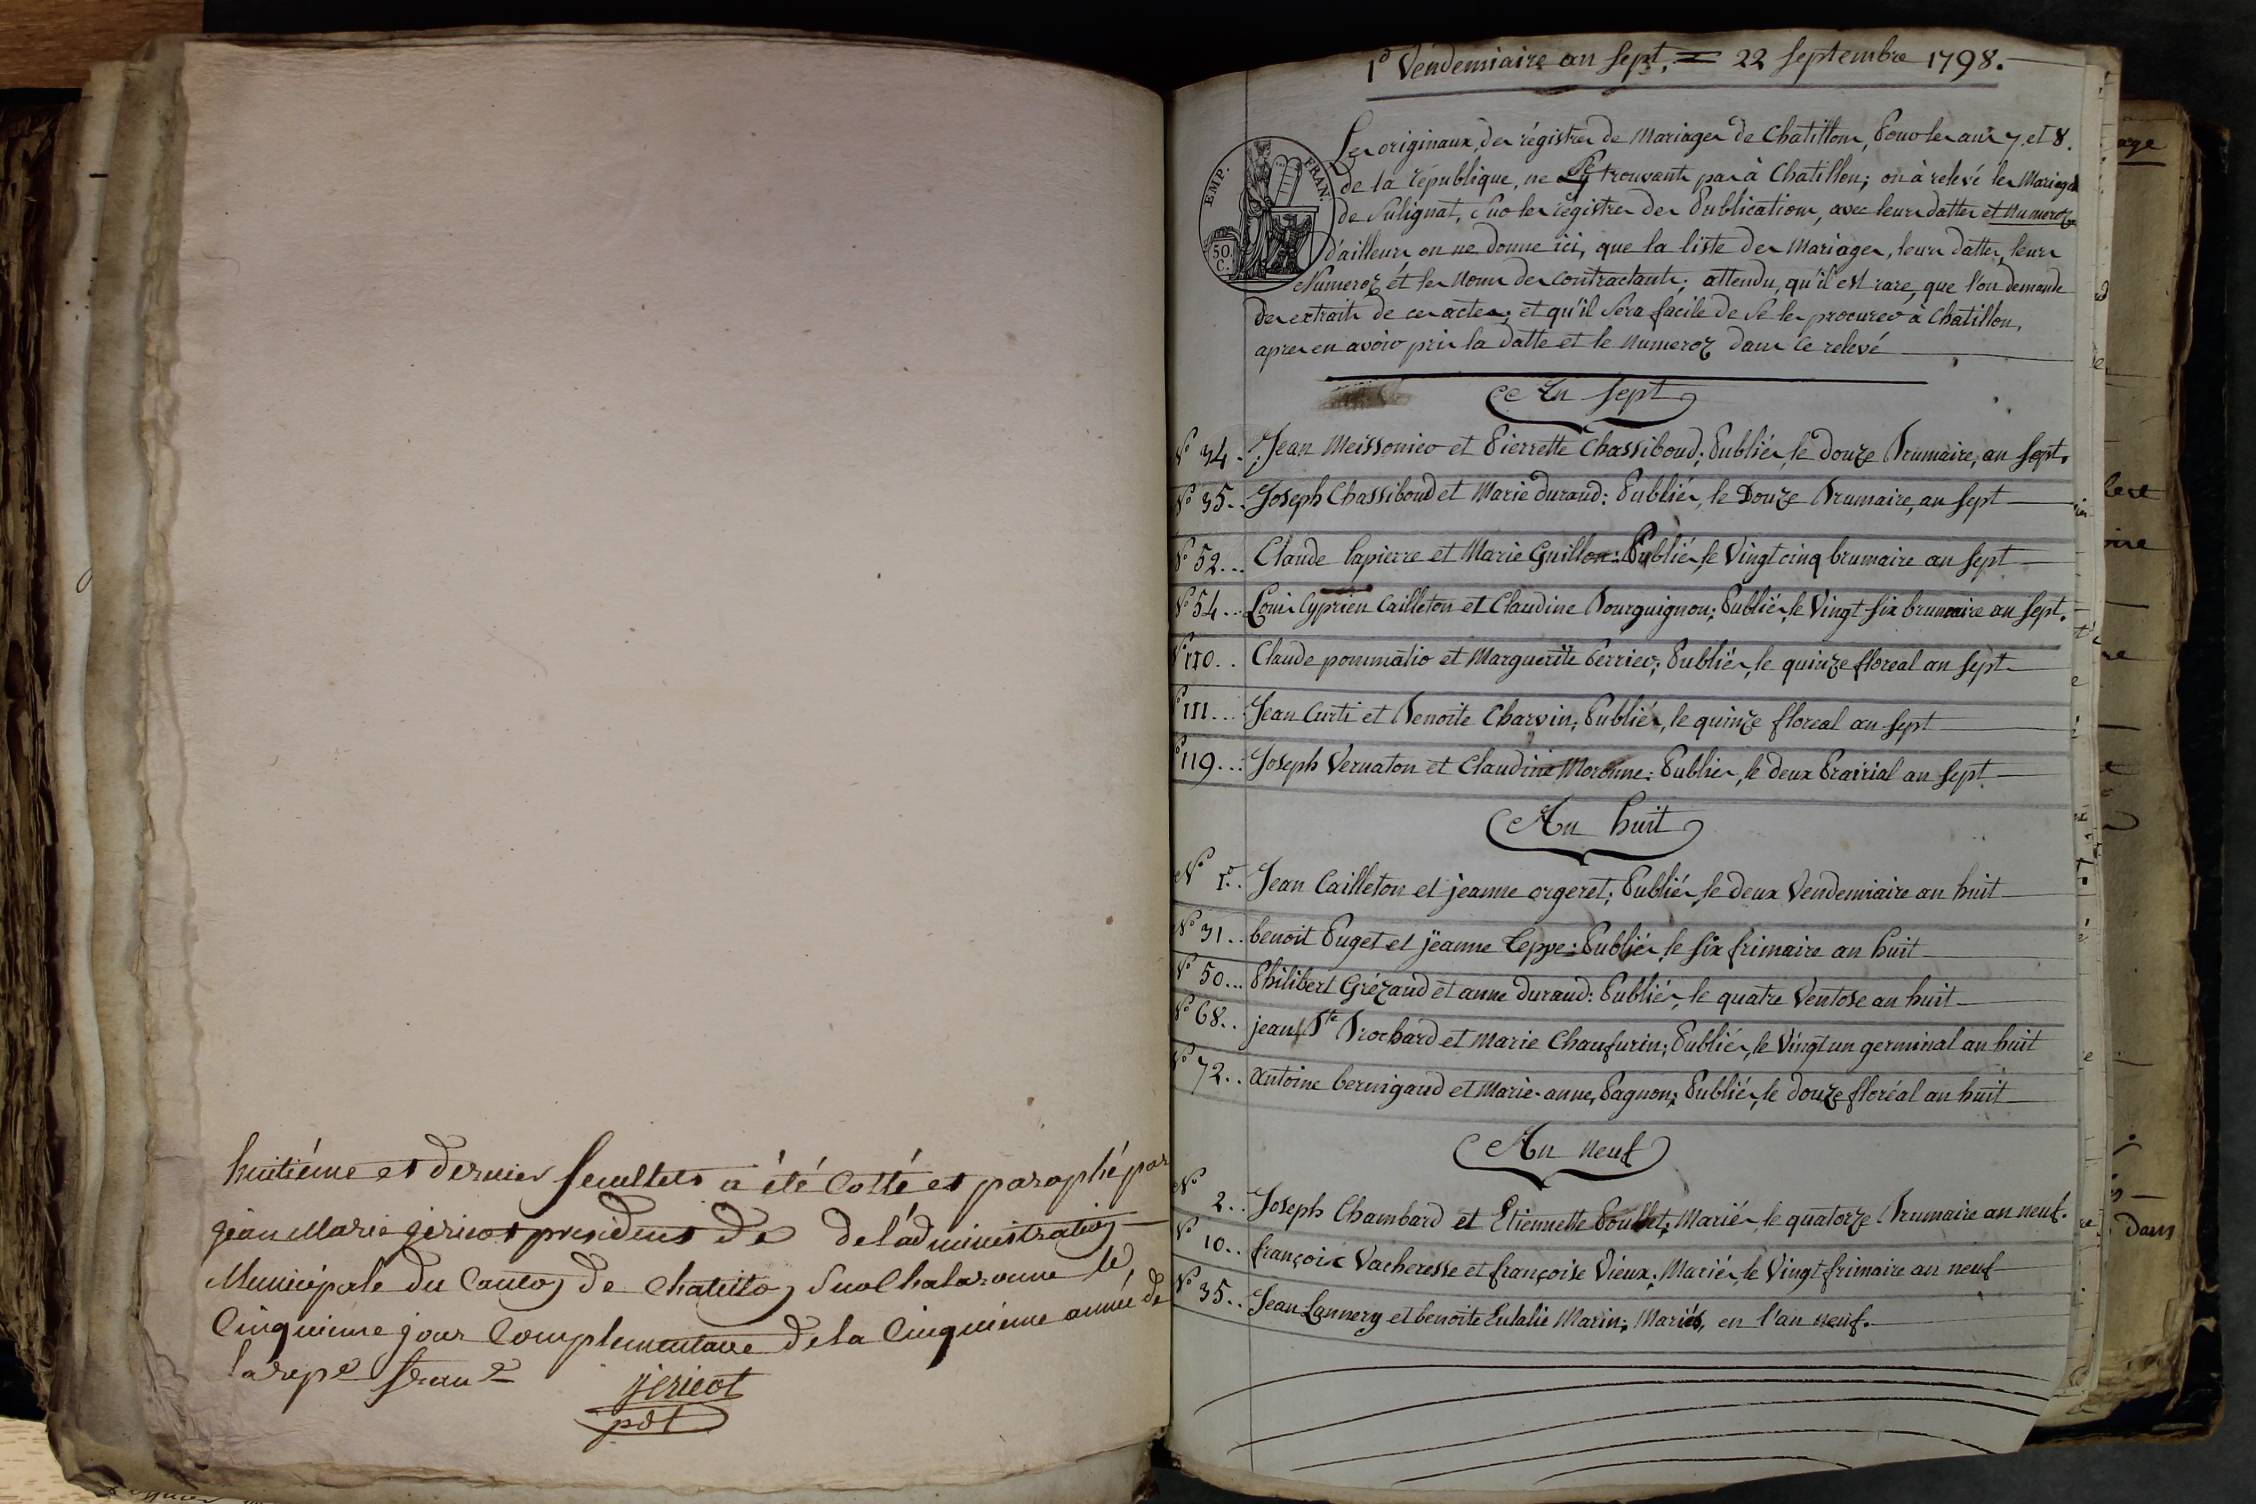 huitiéme et dernier feuillets a été Cotté et paraphé par
jean Marie jericot president de de l'administration
Municipale du Canton de Chatillon Sur Chalaronne le
Cinquieme jour Complementaire de la Cinquiéme année de
la repe franse
jericot
pdt
1o Vendemiaire an Sept, = 22 Septembre 1798.
EMP. FRAN.
50. C.
Les originaux, des régistres de Mariages de Chatillon, Pour les ans 7 et 8.
de la république, ne se trouvants pas à Chatillon; on à relevé les Mariages
de Sulignat, Sur les registres des Publications, avec leurs dattes et Numeroz
d'ailleurs on ne donne ici, que la liste des Mariages, leurs dattes, leurs
Numeroz et les Noms des contractants; attendu, qu'il est rare, que l'on demande
des extraits de ces actes; et qu'il Sera facile de Se les procurer à Chatillon,
apres en avoir pris la datte et le Numeroz dans ce relevé
An Sept
No 34. Jean Meissonier et Pierrette Chassiboud; Publiés, le douze Brumaire, an Sept.
No 35.. Joseph Chassiboud et Marie durand: Publiés, le Douze Brumaire, an Sept
No 52... Claude lapierre et Marie Guillon: Publiés, le Vingt cinq brumaire an Sept
No 54... Louis Cyprien Cailleton et Claudine Bourguignon; Publiés, le Vingt Six brumaire an Sept.
No 110.. Claude pommatio et Marguerite Perrier; Publiés, le quinze floreal an Sept
No 111... Jean Curti et Benoite Charvin; Publiés, le quinze floreal an Sept
No 119... Joseph Vernaton et Claudine Moronne: Publies, le deux Prairial an Sept
An huit
No 1o.. Jean Cailleton et jeanne orgeret; Publiés, le deux Vendemiaire an huit
No 31.. benoit Puget et jeanne Teppe: Publiés, le Six frimaire an huit
No 50... Philibert Grézaud et anne durand: Publiés, le quatre Ventose an huit
No 68.. jean Bte Brochard et Marie Chaufurin; Publiés, le Vingt un germinal an huit
No 72.. antoine bernigaud et Marie-anne, Pagnon; Publiés, le douze floréal an huit
An Neuf
No 2.. Joseph Chambard et Etiennette Poullet; Mariés, le quatorze Brumaire an neuf.
No 10.. françois Vacheresse et françoise Vieux; Mariés, le Vingt frimaire an neuf
No 35.. Jean Lannery et benoite Eulalie Marin; Mariés, en l'an neuf.